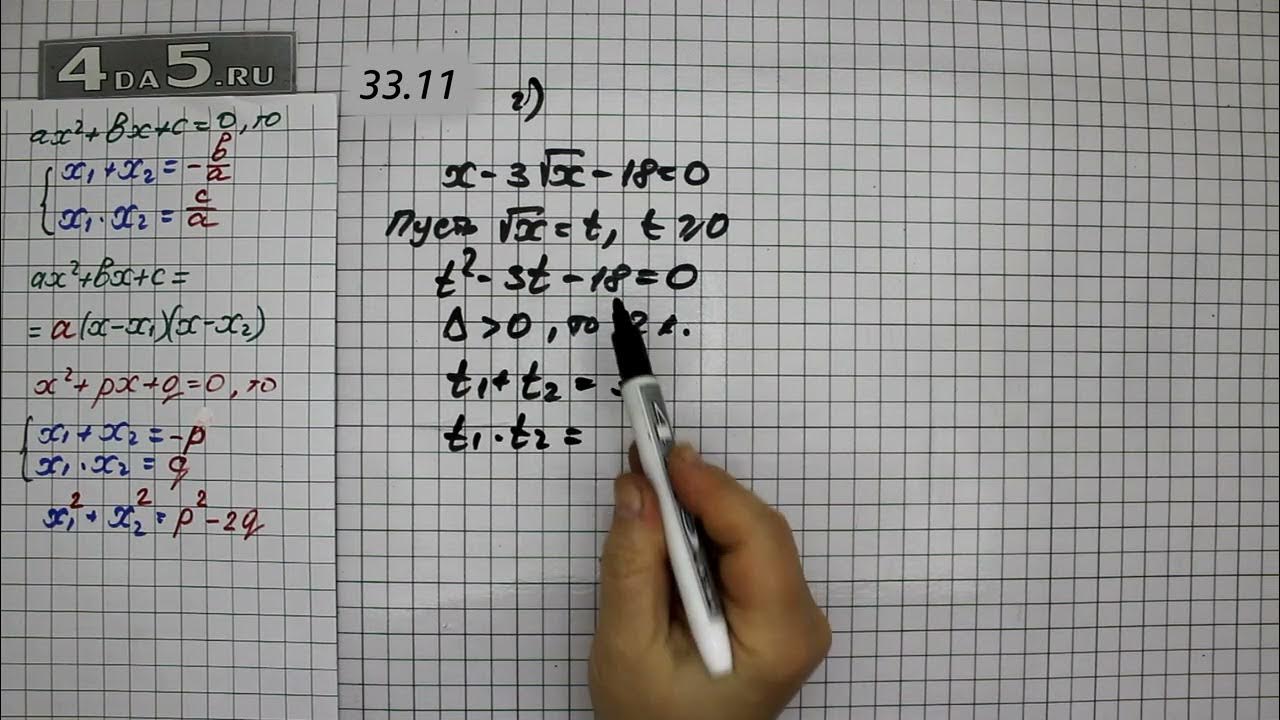 4DA5.RU
ax²+bx+c=0, то
x₁+x₂=-b/a
x₁·x₂=c/a
ax²+bx+c=
=a(x-x₁)(x-x₂)
x²+px+q=0, то
x₁+x₂=-p
x₁·x₂=q
x₁²+x₂²=p²-2q
33.11
г)
x-3√x-18=0
Пусть √x=t, t≥0
t²-3t-18=0
Δ>0, то 2 к.
t₁+t₂=3
t₁·t₂=